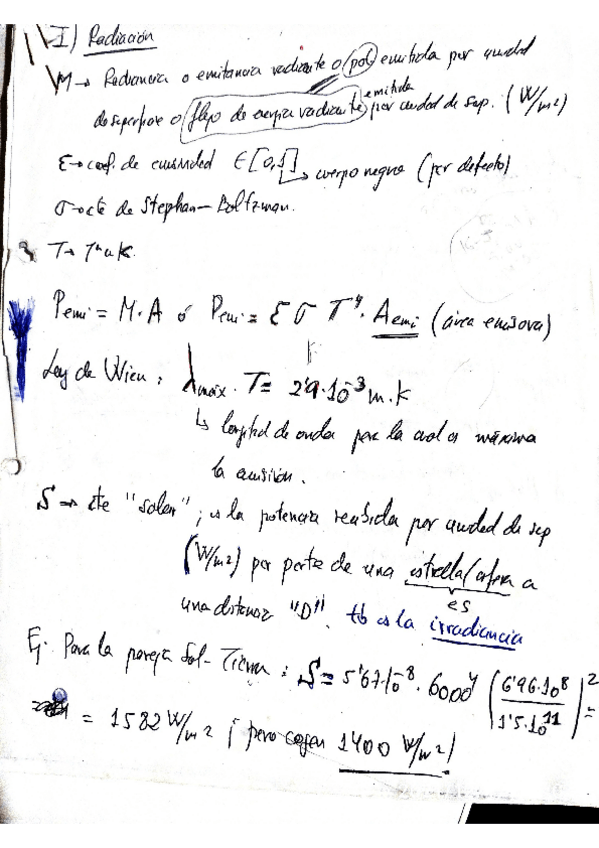 I) Radiación
M → Radiancia o emitancia radiante o (pot) emitida por unidad
de superficie o (flujo de energía radiante) emitida por unidad de sup. (W/m²)
ε → coef. de emisividad ∈ [0,1] ↳ cuerpo negro (por defecto)
σ → cte de Stephan-Boltzman.
T → Tª a K.
Pemi = M·A ó Pemi = ε σ T⁴· Aemi (área emisora)
Ley de Wien: λmáx · T = 2'9·10⁻³ m·K
↳ longitud de onda para la cual es máxima
la emisión.
S → cte "solar"; es la potencia recibida por unidad de sup
(W/m²) por parte de una estrella/esfera a
una distancia "D". tb es la irradiancia
es
Ej: Para la pareja Sol-Tierra: S = 5'67·10⁻⁸ · 6000⁴ (6'96·10⁸ / 1'5·10¹¹)² =
= 1582 W/m² ¡ pero cogen 1400 W/m²)